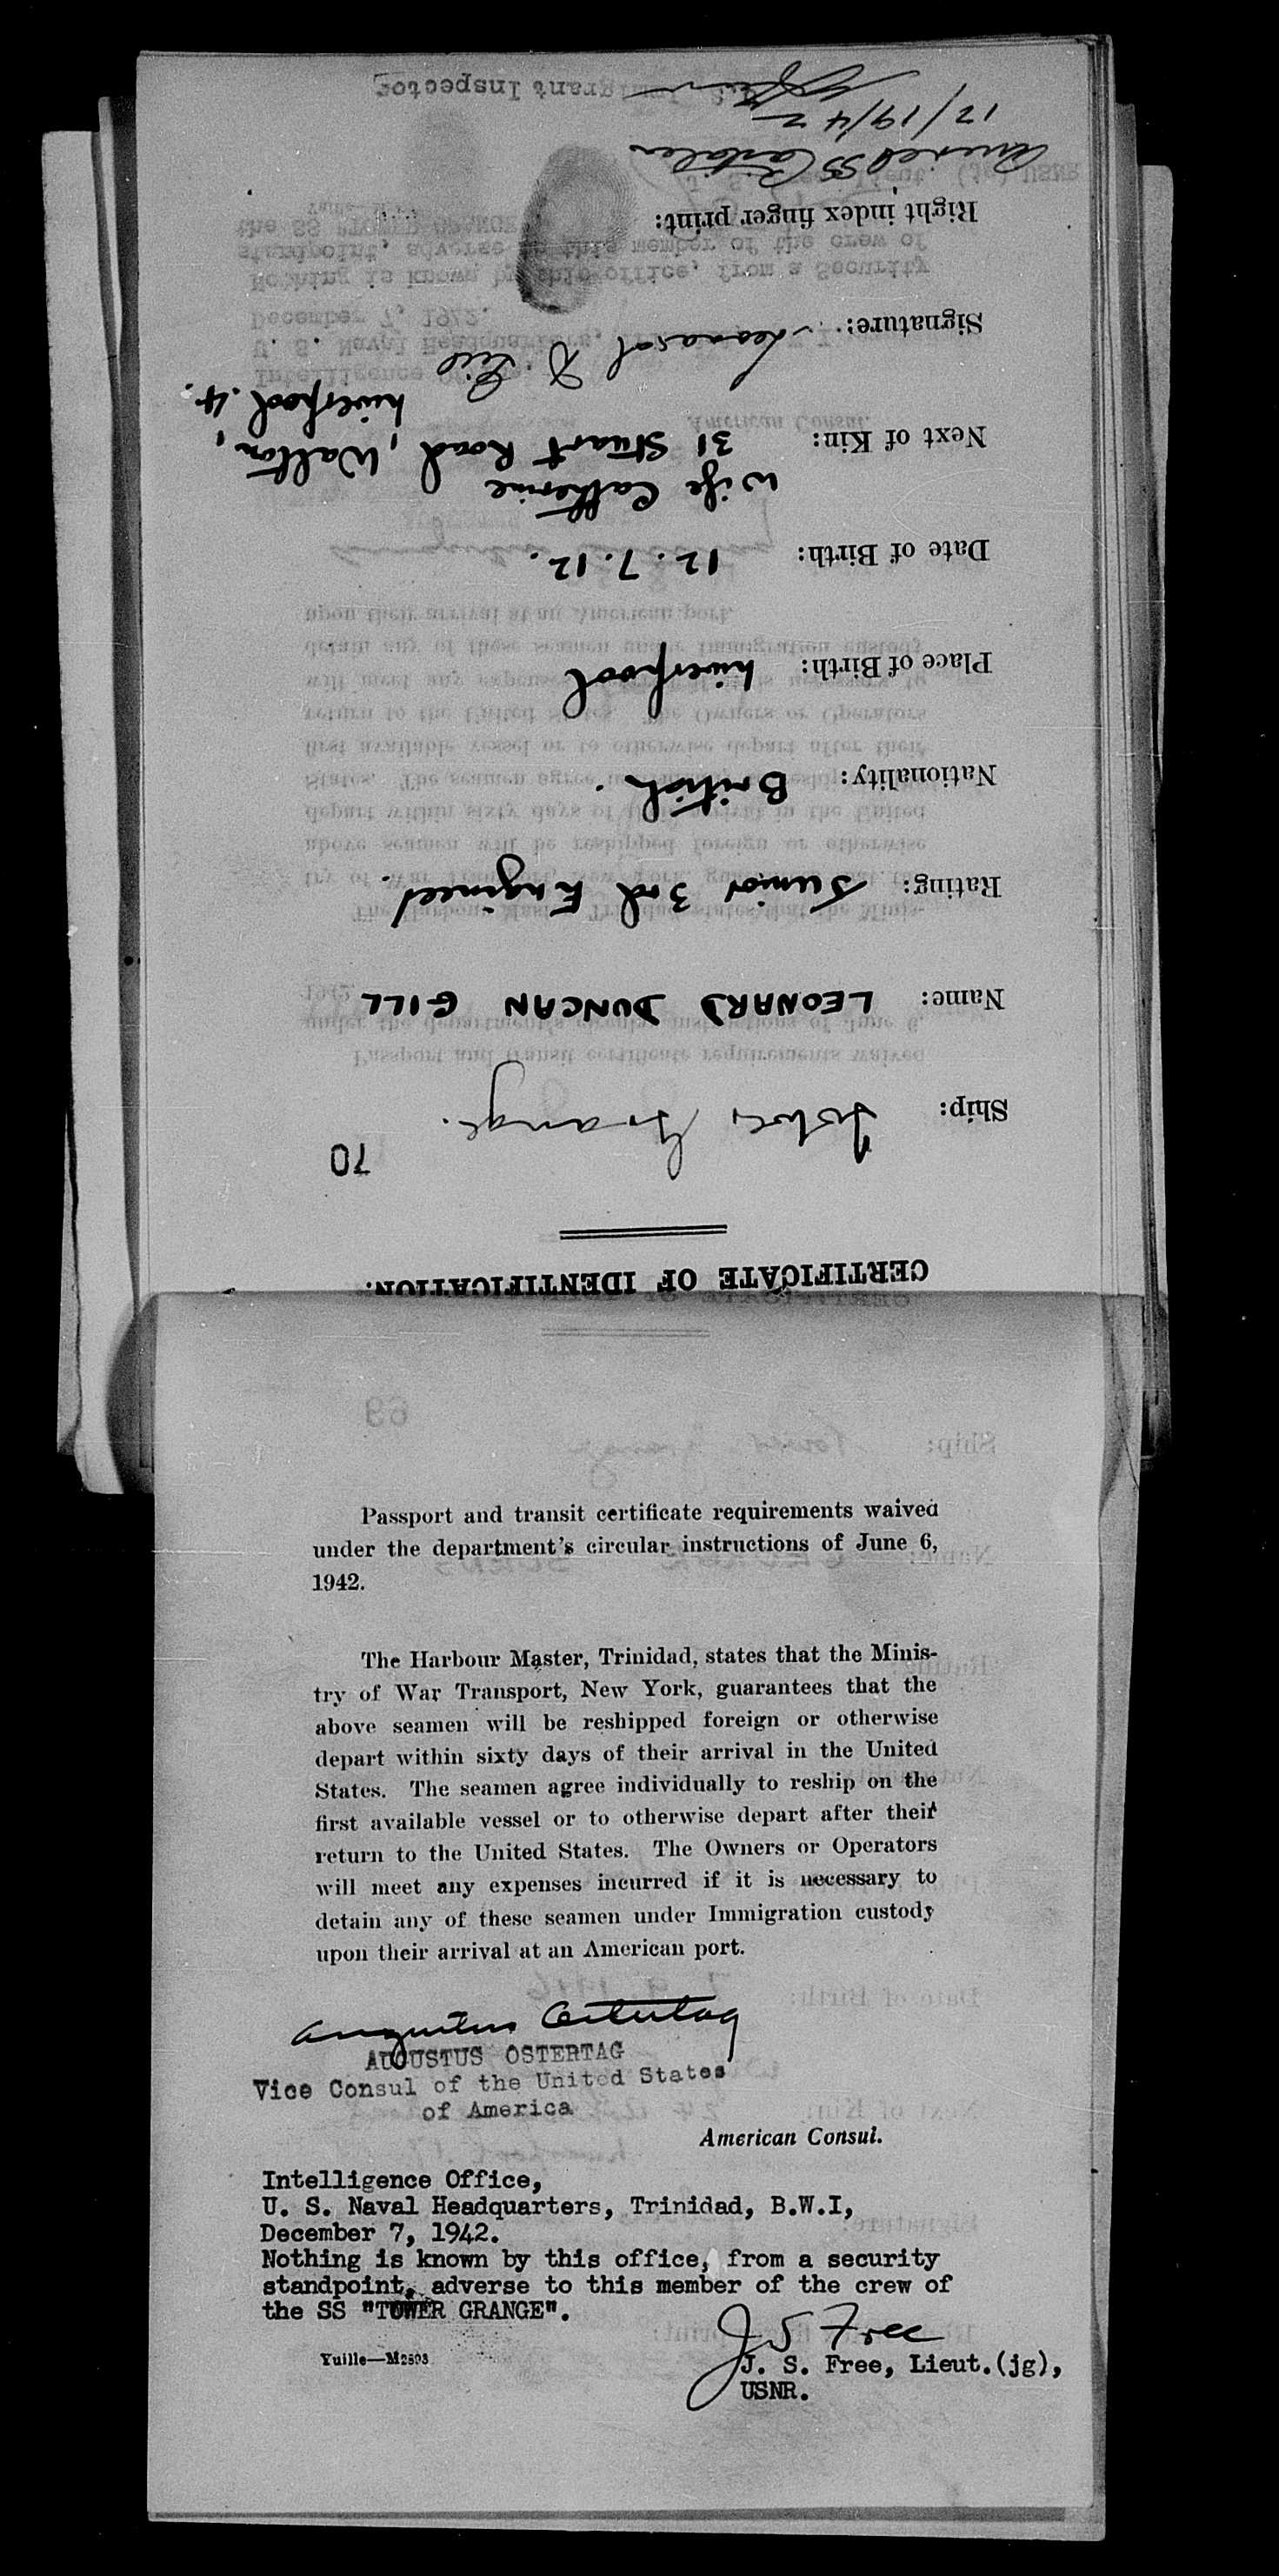 CERTIFICATE OF IDENTIFICATION.
70
Ship: Tower Grange.
Name: LEONARD DUNCAN GILL
Rating: Junior 3rd Engineer.
Nationality: British.
Place of Birth: Liverpool
Date of Birth: 12.7.12.
Wife Catherine
Next of Kin: 31 Stuart Road, Walton,
Liverpool. 4.
Signature: Leonard D Gill
Right index finger print:
SS
12/19/42
Immigrant Inspector
69
Passport and transit certificate requirements waived
under the department's circular instructions of June 6,
1942.
The Harbour Master, Trinidad, states that the Minis-
try of War Transport, New York, guarantees that the
above seamen will be reshipped foreign or otherwise
depart within sixty days of their arrival in the United
States. The seamen agree individually to reship on the
first available vessel or to otherwise depart after their
return to the United States. The Owners or Operators
will meet any expenses incurred if it is necessary to
detain any of these seamen under Immigration custody
upon their arrival at an American port.
Augustus Ostertag
AUGUSTUS OSTERTAG
Vice Consul of the United States
of America
American Consul.
Intelligence Office,
U. S. Naval Headquarters, Trinidad, B.W.I,
December 7, 1942.
Nothing is known by this office, from a security
standpoint, adverse to this member of the crew of
the SS "TOWER GRANGE".
J S Free
Yuille—M2593
J. S. Free, Lieut.(jg),
USNR.